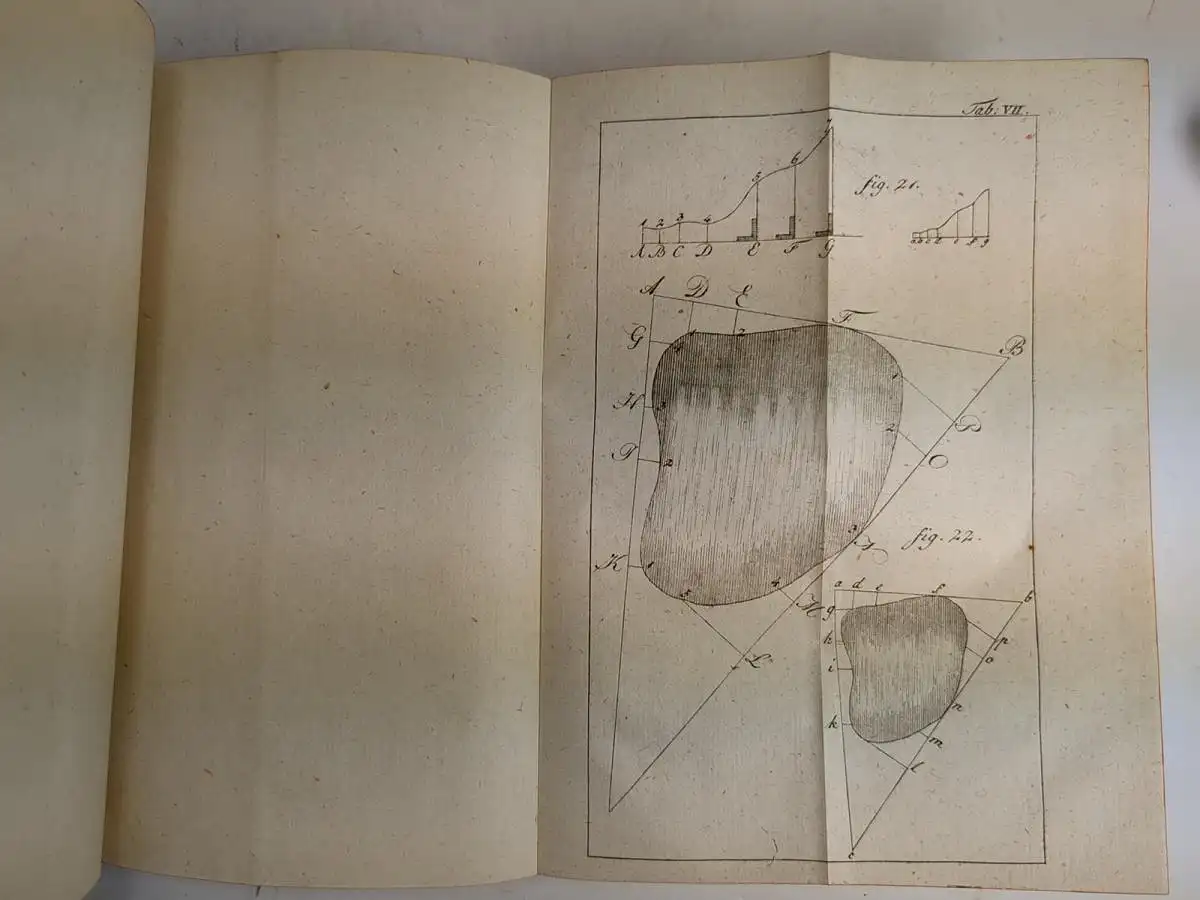 Tab: VII.
7
6
5
fig. 21.
1 2 3 4
A B C D E F G
a b c d e f g
A D E
F
G 1 2
B
H
1
P
2
2
O
K 1
3
fig. 22.
5 4
M
a d e f b
g
h
p
L
i
o
k
n
m
l
c